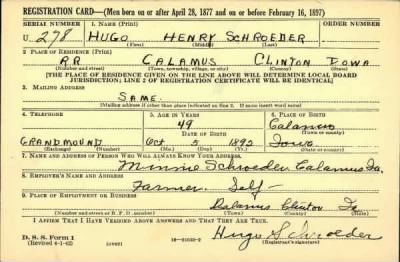 REGISTRATION CARD—(Men born on or after April 28, 1877 and on or before February 16, 1897)
SERIAL NUMBER 1. NAME (Print) ORDER NUMBER
U 278 HUGO HENRY SCHROEDER
(First) (Middle) (Last)
2. PLACE OF RESIDENCE (Print)
RR CALAMUS CLINTON IOWA
(Number and street) (Town, township, village, or city) (County) (State)
[THE PLACE OF RESIDENCE GIVEN ON THE LINE ABOVE WILL DETERMINE LOCAL BOARD
JURISDICTION; LINE 2 OF REGISTRATION CERTIFICATE WILL BE IDENTICAL]
3. MAILING ADDRESS
SAME.
[Mailing address if other than place indicated on line 2. If same insert word same]
4. TELEPHONE 5. AGE IN YEARS 6. PLACE OF BIRTH
49 Calamus
DATE OF BIRTH (Town or county)
GRANDMOUND Oct 5 1892 Iowa
(Exchange) (Number) (Mo.) (Day) (Yr.) (State or country)
7. NAME AND ADDRESS OF PERSON WHO WILL ALWAYS KNOW YOUR ADDRESS
Minnie Schroeder Calamus Ia,
8. EMPLOYER'S NAME AND ADDRESS
Farmer Self-
9. PLACE OF EMPLOYMENT OR BUSINESS
Calamus Clinton Ia
(Number and street or R. F. D. number) (Town) (County) (State)
I AFFIRM THAT I HAVE VERIFIED ABOVE ANSWERS AND THAT THEY ARE TRUE.
D. S. S. Form 1
(Revised 4-1-42) (over) Hugo Schroeder
(Registrant's signature)